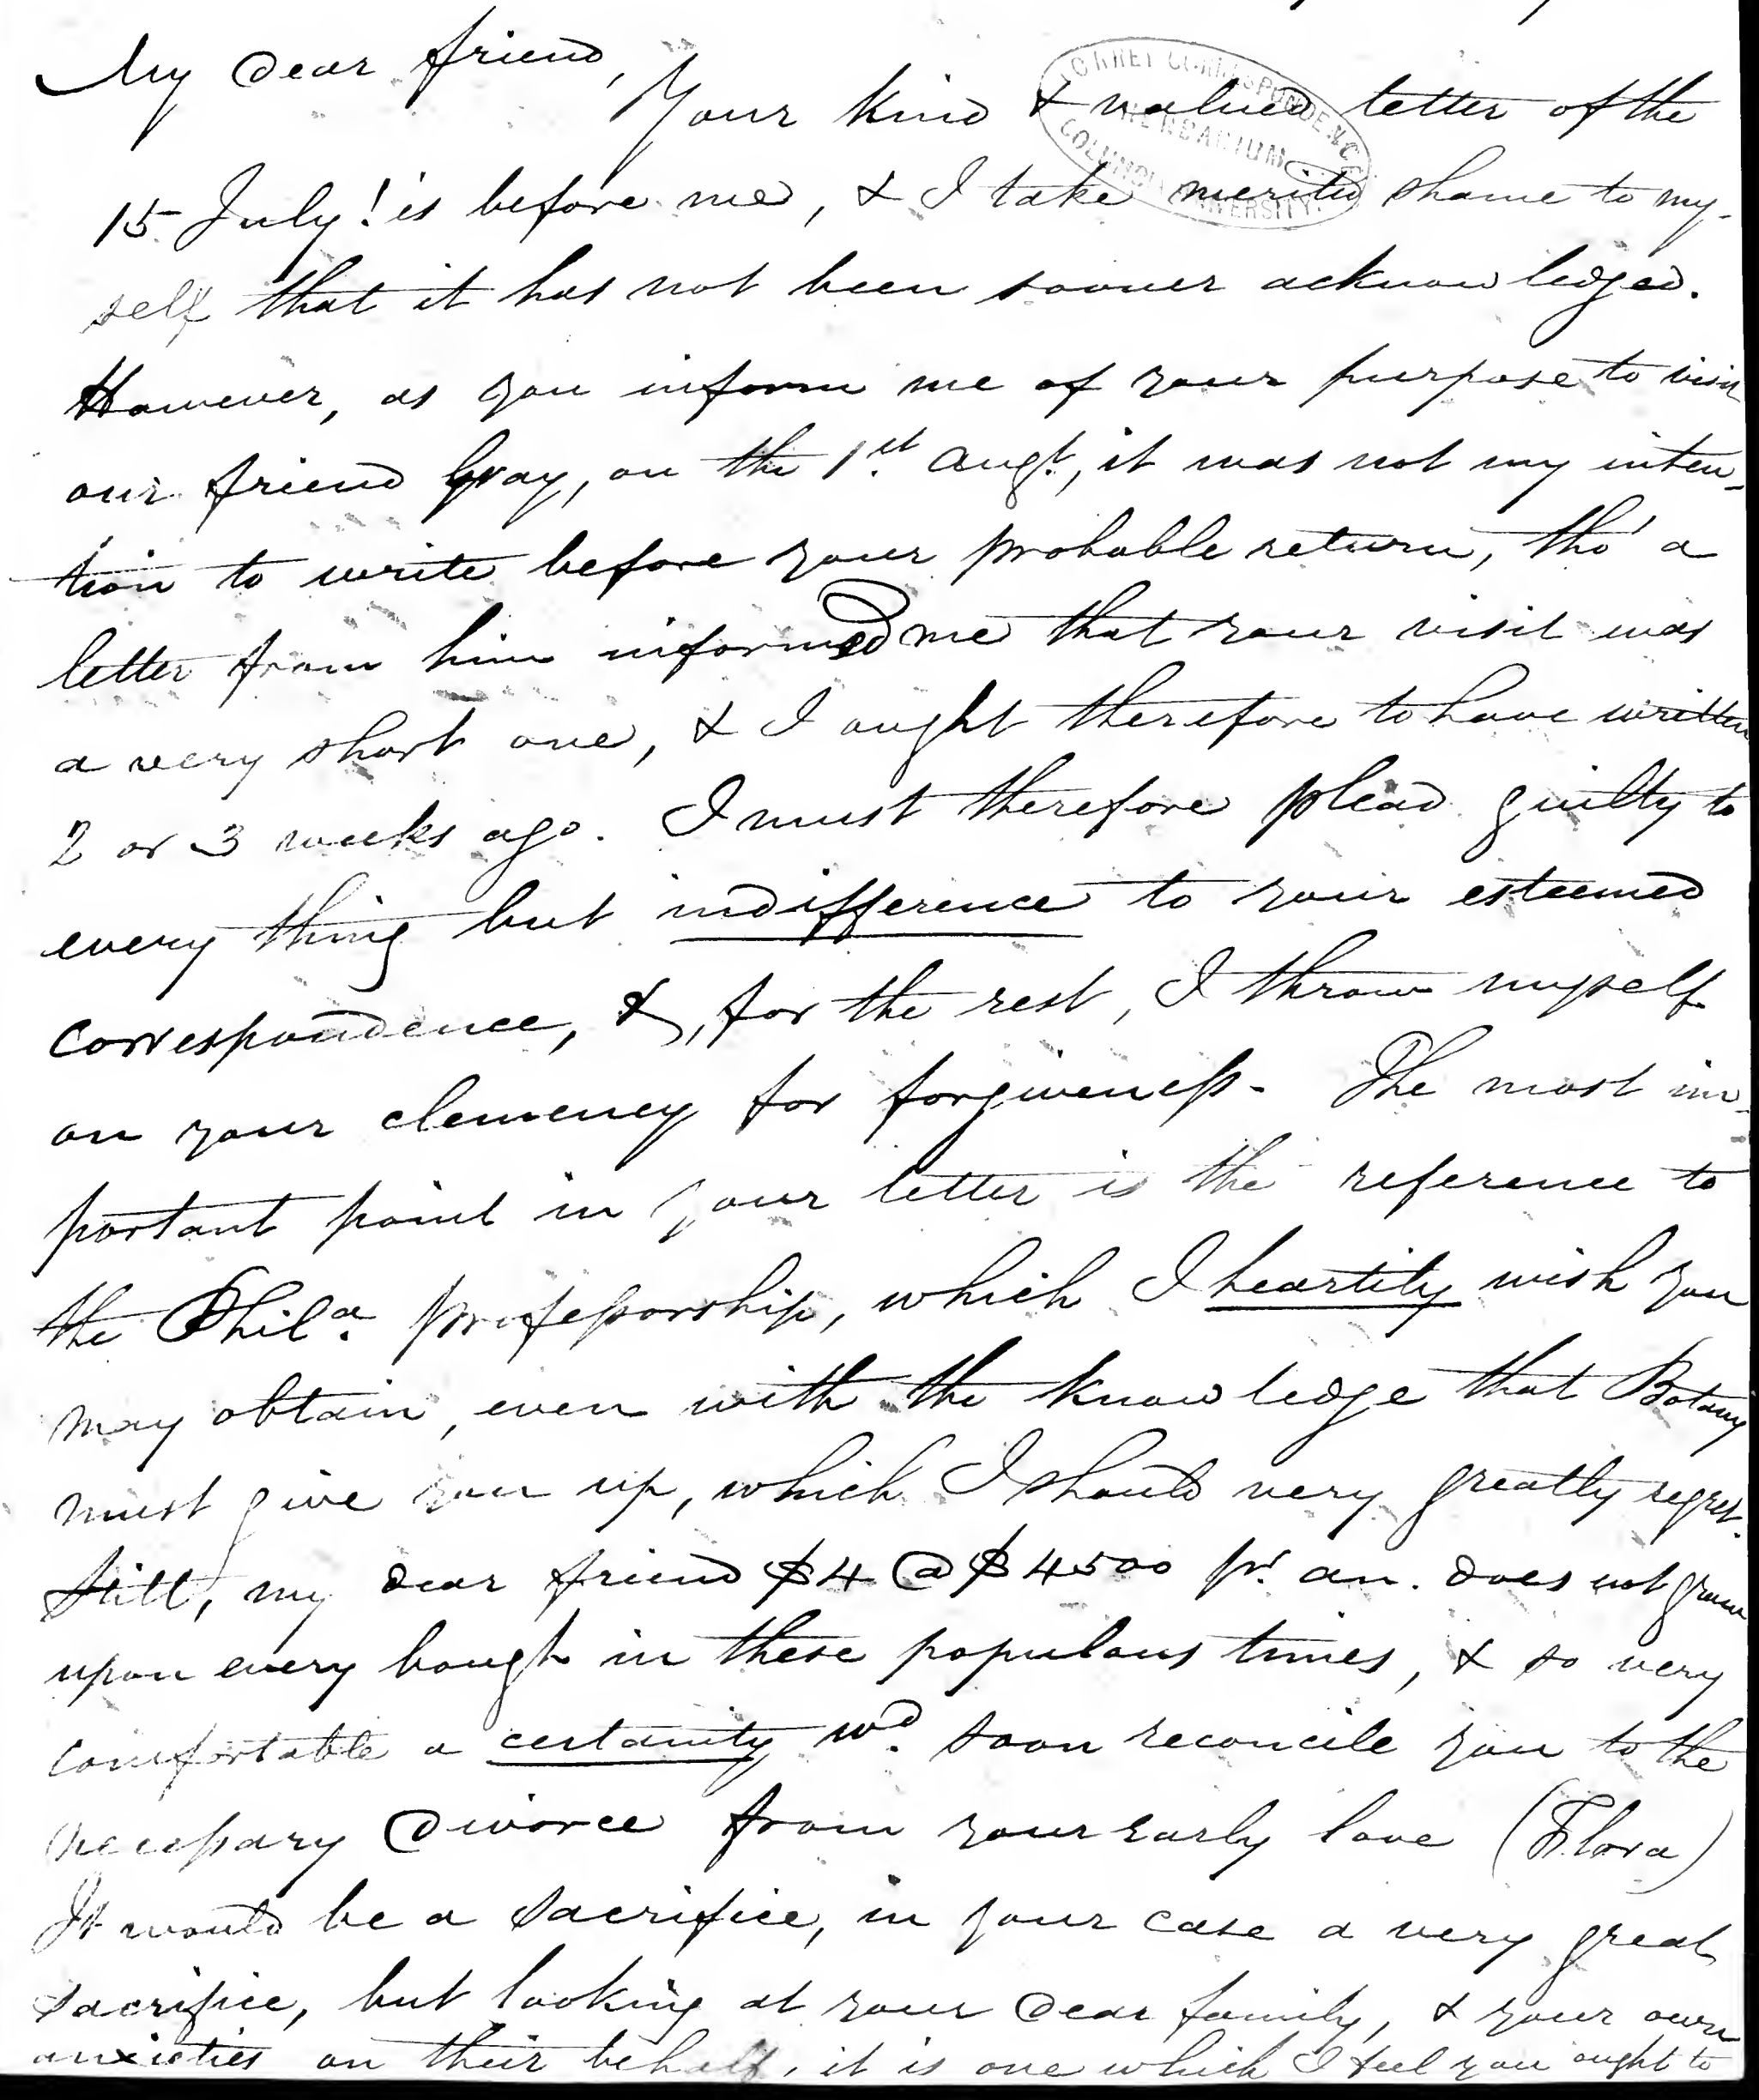 My dear friend,
Your kind & valued letter of the
TORREY CORRESPONDENCE
HERBARIUM
COLUMBIA UNIVERSITY
15 July! is before me, & I take merited shame to my-
self that it has not been sooner acknowledged.
However, as you inform me of your purpose to visit
our friend Gray, on the 1st. Augt., it was not my inten-
tion to write before your probable return, tho' a
letter from him informed me that your visit was
a very short one, & I ought therefore to have written
2 or 3 weeks ago. I must therefore plead guilty to
every thing but indifference to your esteemed
correspondence, &, for the rest, I throw myself
on your clemency for forgiveness. The most im-
portant point in your letter is the reference to
the Phila. professorship, which I heartily wish you
may obtain, even with the knowledge that Botany
must give you up, which I should very greatly regret.
Still, my dear friend $4 @ $4500 pr. an. does not grow
upon every bough in these populous times, & so very
comfortable a certainty wd. soon reconcile you to the
necessary divorce from your early love (Flora)
It would be a sacrifice, in your case a very great
sacrifice, but looking at your dear family, & your own
anxieties on their behalf, it is one which I feel you ought to